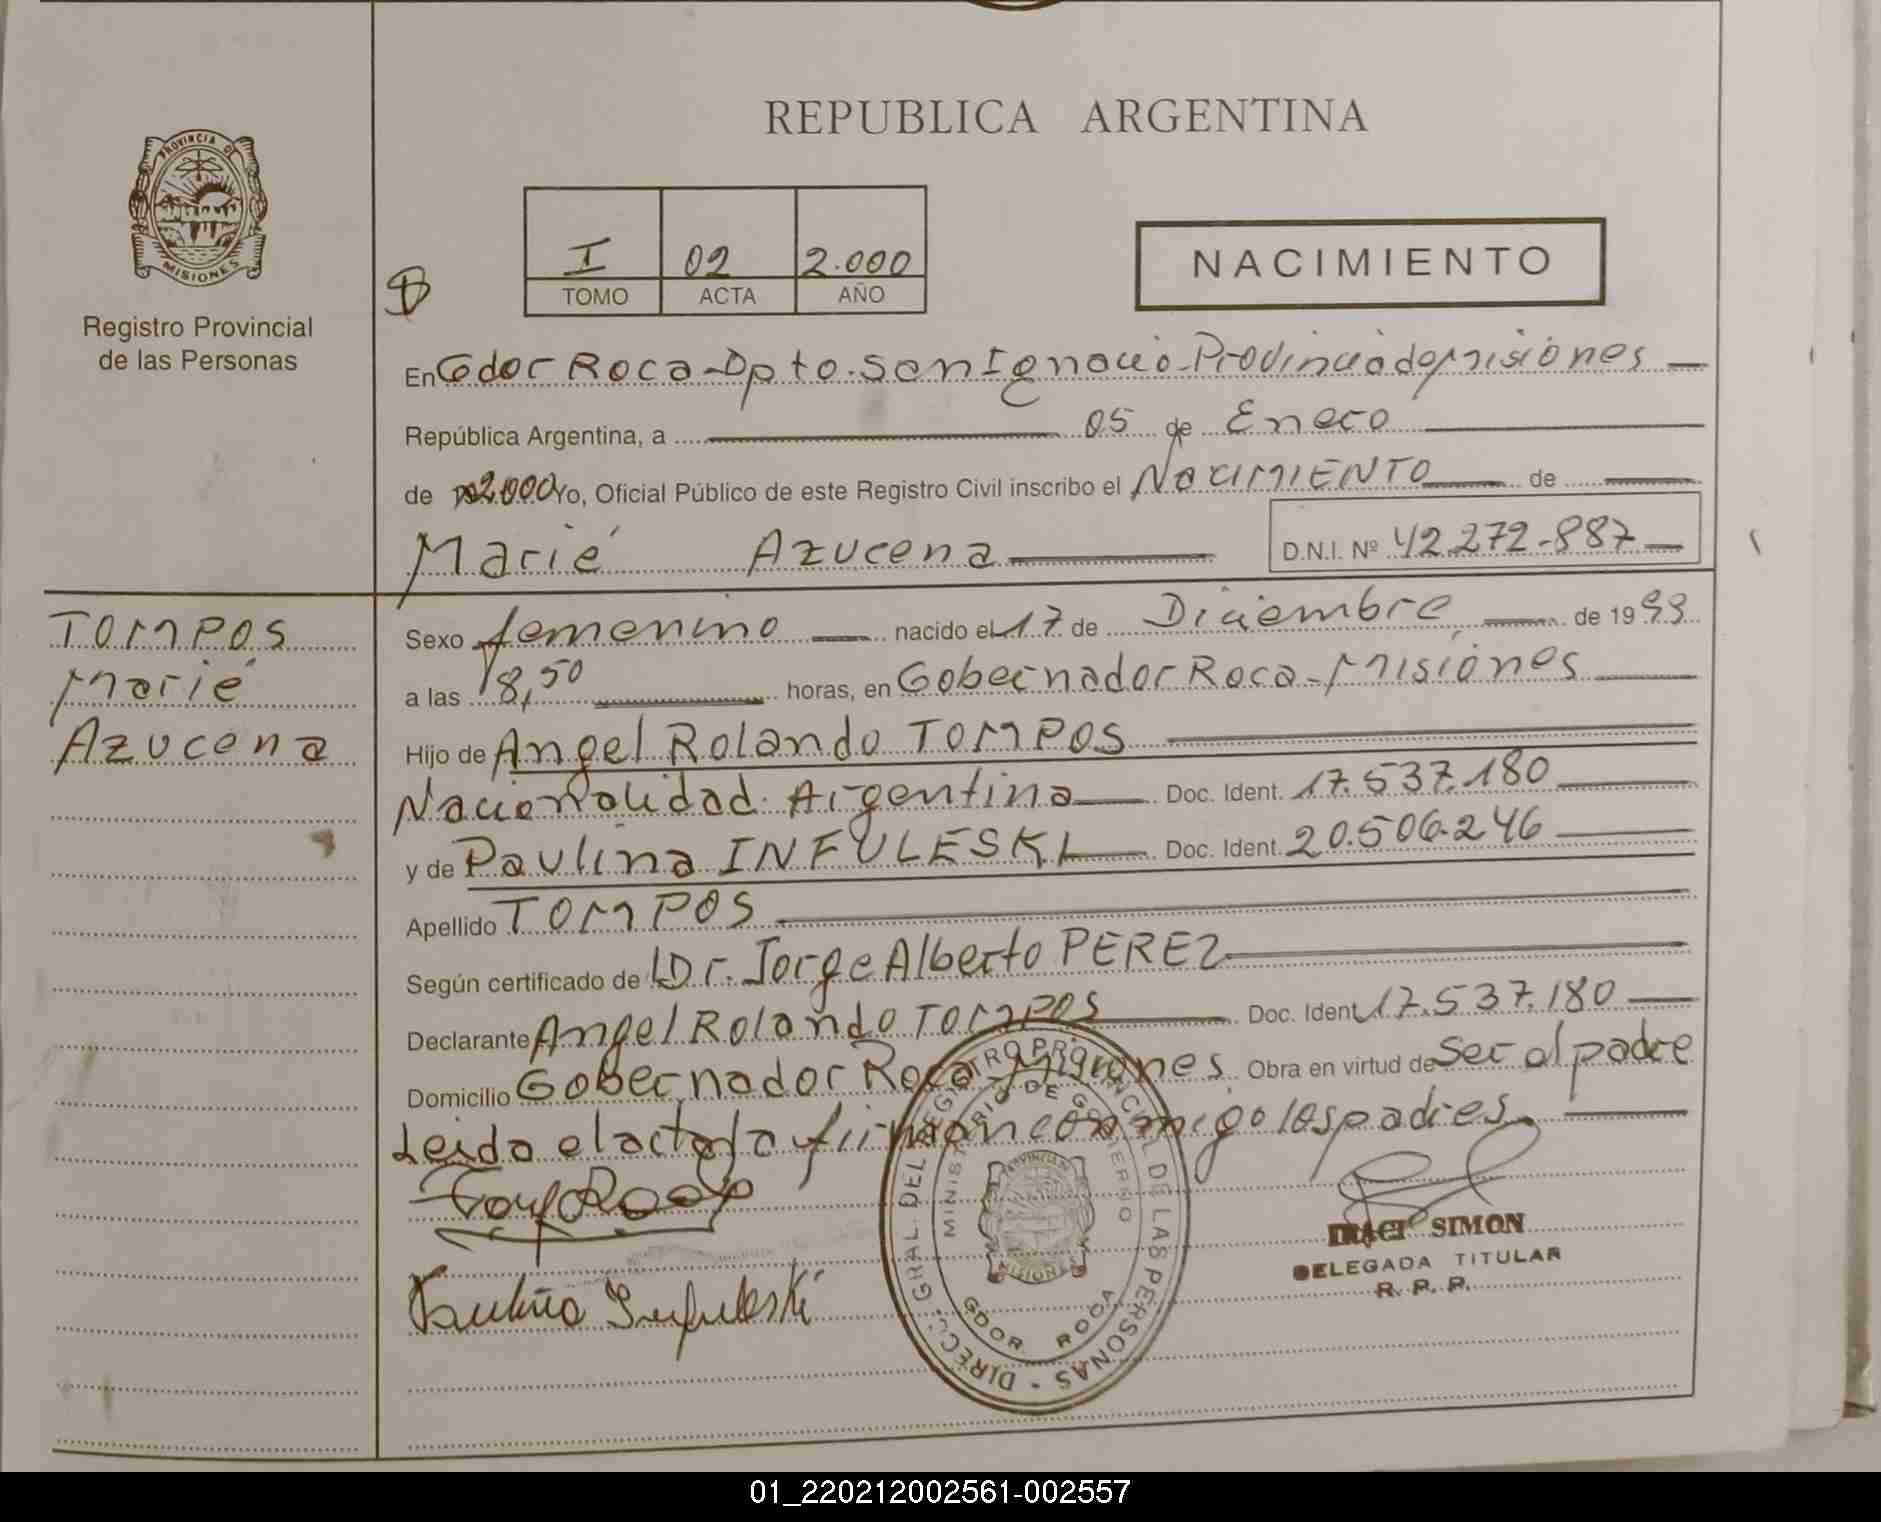 REPUBLICA ARGENTINA
PROVINCIA DE
MISIONES
Registro Provincial
de las Personas
I 02 2.000
TOMO ACTA AÑO
NACIMIENTO
En Gdor Roca-Dpto. San Ignacio-Provincia de Misiones
República Argentina, a 05 de Enero
de 2.000 Yo, Oficial Público de este Registro Civil inscribo el NACIMIENTO de
Marié Azucena D.N.I. Nº 42.272-887
TOMPOS
Marié
Azucena
Sexo femenino nacido el 17 de Diciembre, de 1999
a las 18,50 horas, en Gobernador Roca-Misiones
Hijo de Angel Rolando TOMPOS
Nacionalidad Argentina Doc. Ident. 17.537.180
y de Paulina INFULESKI Doc. Ident. 20.506.246
Apellido TOMPOS
Según certificado de Dr. Jorge Alberto PEREZ
Declarante Angel Rolando TOMPOS Doc. Ident 17.537.180
Domicilio Gobernador Roca-Misiones Obra en virtud de Ser el padre
Leida el acta la firman conmigo los padres.
DIRECC. GRAL. DEL REGISTRO PROVINCIAL DE LAS PERSONAS -
MINISTERIO DE GOBIERNO
PROVINCIA DE
MISIONES
GDOR ROCA
IRACI SIMON
DELEGADA TITULAR
R. P. P.
Paulina Infuleski
01_220212002561-002557